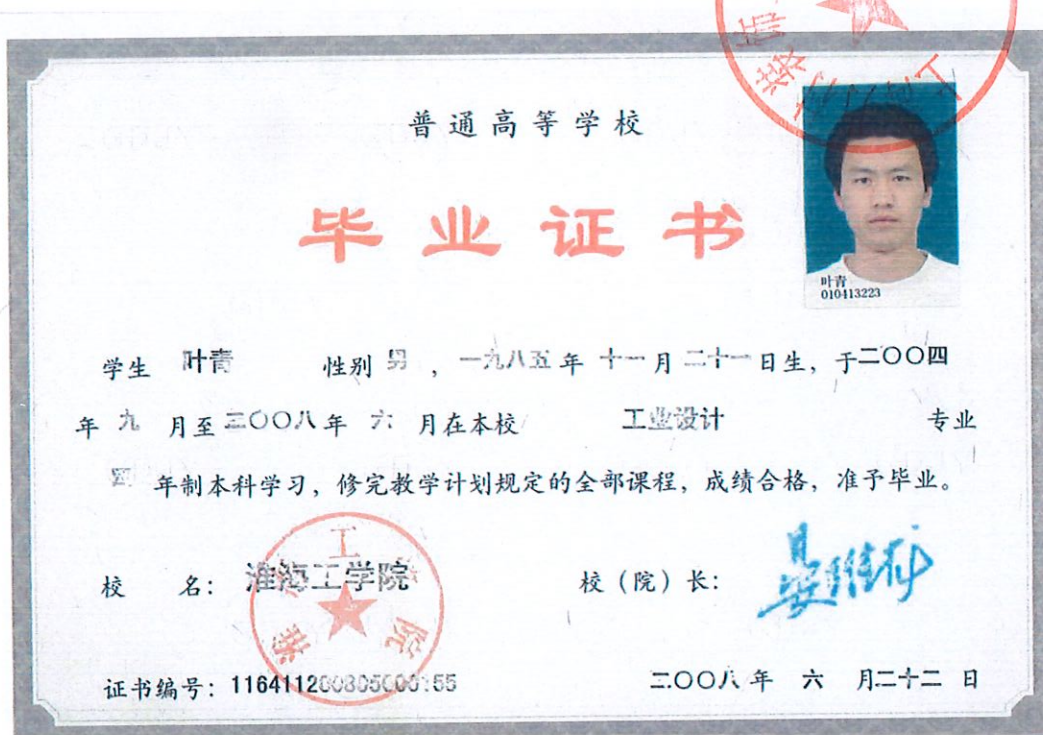 普通高等学校
毕业证书
叶青
010413223
学生 叶青 性别 男 ，一九八五年 十一月 二十一日生，于二〇〇四
年 九 月至二〇〇八年 六 月在本校 工业设计 专业
四 年制本科学习，修完教学计划规定的全部课程，成绩合格，准予毕业。
校 名： 淮海工学院 校（院）长：
淮海工学院
证书编号： 二〇〇八年 六 月二十二日